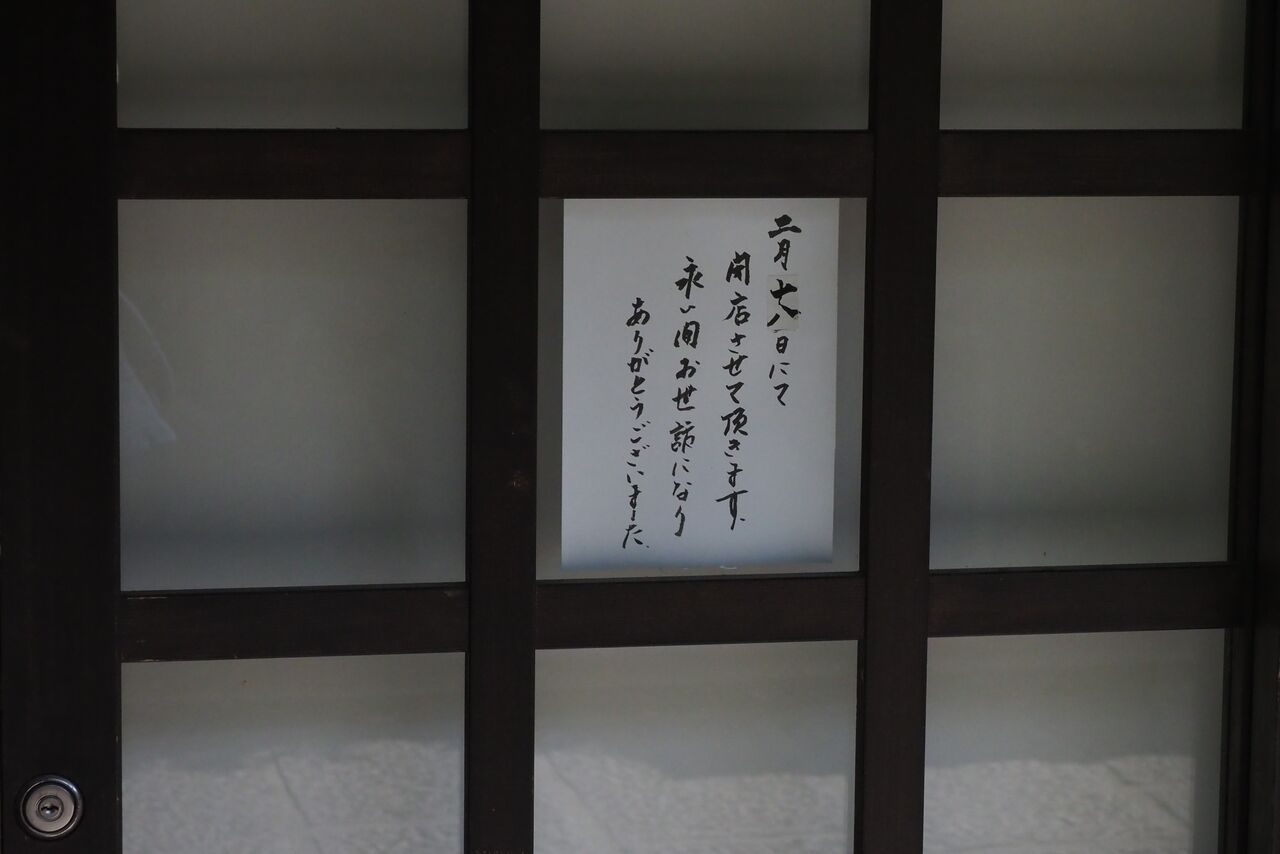 二月十八日にて
閉店させて頂きます。
永い間お世話になり
ありがとうございました。